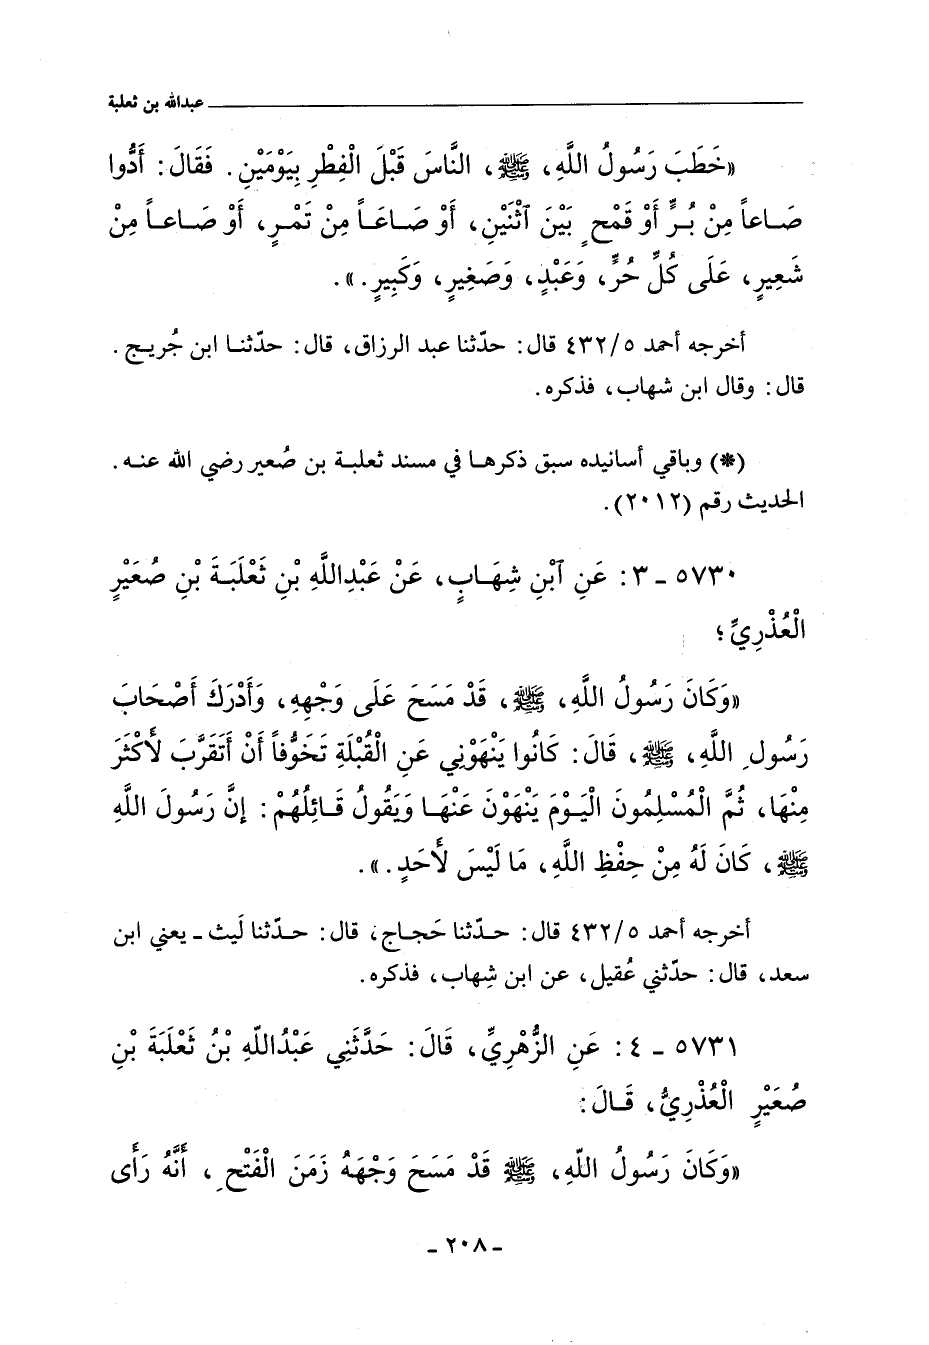 عبدالله بن ثعلبة
«خَطَبَ رَسُولُ اللَّهِ، ﷺ، النَّاسَ قَبْلَ الْفِطْرِ بِيَوْمَيْنِ. فَقَالَ: أَدُّوا
صَـاعاً مِنْ بُـرٍّ أَوْ قَمْحٍ بَيْنَ ٱثْنَيْنِ، أَوْ صَـاعَـاً مِنْ تَمْـرٍ، أَوْ صَـاعـاً مِنْ
شَعِيرٍ، عَلَى كُلِّ حُرٍّ، وَعَبْدٍ، وَصَغِيرٍ، وَكَبِيرٍ.».
أخرجه أحمد ٤٣٢/٥ قال: حدّثنا عبد الرزاق، قال: حدّثنـا ابن جُريـج.
قال: وقال ابن شهاب، فذكره.
(*) وباقي أسانيده سبق ذكرهـا في مسند ثعلبـة بن صُعير رضي الله عنـه.
الحديث رقم (٢٠١٢).
٥٧٣٠ ـ ٣: عَنِ ٱبْنِ شِهَـابٍ، عَنْ عَبْدِاللَّهِ بْنِ ثَعْلَبَـةَ بْنِ صُعَيْرٍ
الْعُذْرِيِّ؛
«وَكَانَ رَسُولُ اللَّهِ، ﷺ، قَدْ مَسَحَ عَلَى وَجْهِهِ، وَأَدْرَكَ أَصْحَابَ
رَسُولِ اللَّهِ، ﷺ، قَالَ: كَانُوا يَنْهَوْنِي عَنِ الْقُبْلَةِ تَخَوُّفاً أَنْ أَتَقَرَّبَ لأَكْثَرَ
مِنْهَا، ثُمَّ الْمُسْلِمُونَ الْيَـوْمَ يَنْهَوْنَ عَنْهَـا وَيَقُولُ قَـائِلُهُمْ: إِنَّ رَسُولَ اللَّهِ
ﷺ، كَانَ لَهُ مِنْ حِفْظِ اللَّهِ، مَا لَيْسَ لأَحَدٍ.».
أخرجه أحمد ٤٣٢/٥ قال: حـدّثنا حَجـاج، قال: حـدّثنا لَيث ـ يعني ابن
سعد، قال: حدّثني عُقيل، عن ابن شِهاب، فذكره.
٥٧٣١ ـ ٤: عَنِ الزُّهْرِيِّ، قَالَ: حَدَّثَنِي عَبْدُاللّهِ بْنُ ثَعْلَبَةَ بْنِ
صُعَيْرٍ الْعُذْرِيُّ، قَـالَ:
«وَكَانَ رَسُولُ اللّهِ، ﷺ قَدْ مَسَحَ وَجْهَهُ زَمَنَ الْفَتْحِ، أَنَّهُ رَأَى
ـ ٢٠٨ ـ